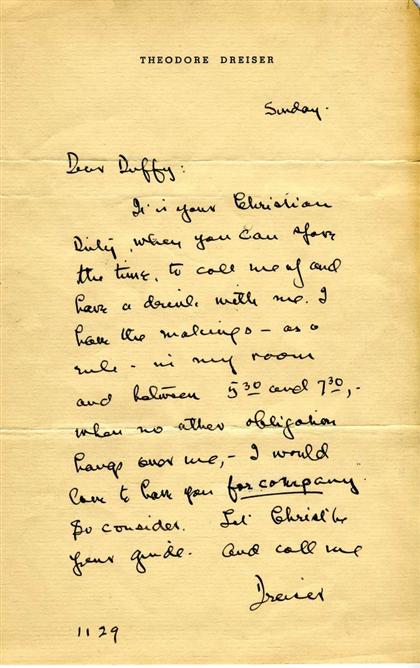 THEODORE DREISER
Sunday.
Dear Duffy:
It is your Christian
Duty, when you can spare
the time, to call me up and
have a drink with me. I
have the makings – as a
rule – in my room
and between 5 30 and 7 30, -
when no other obligation
hangs over me, - I would
love to have you for company.
So consider. Let Christ be
your guide. And call me
Dreiser
1129